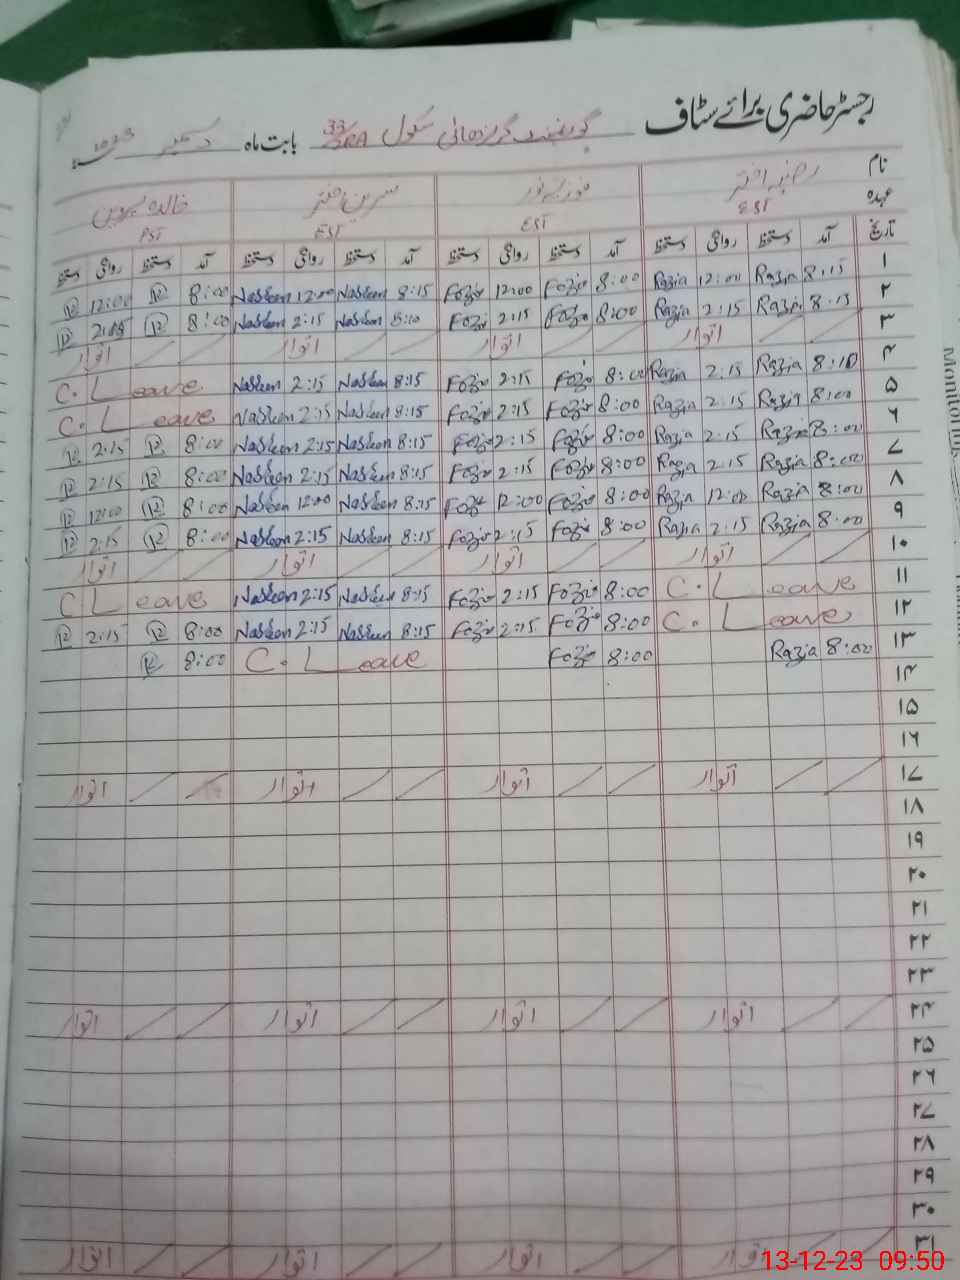 رجسٹر حاضری برائے سٹاف
گورنمنٹ گرلز ہائی سکول 33/3RA بابت ماہ دسمبر 2023
نام رضیہ اختر فوزیہ نور نسرین اختر خالدہ پروین
عہدہ EST EST EST PST
تاریخ آمد دستخط روانگی دستخط آمد دستخط روانگی دستخط آمد دستخط روانگی دستخط آمد دستخط روانگی دستخط
۱ 8:15 Razia 12:00 Razia 8:00 Fozia 12:00 Fozia 8:15 Nasreen 12:00 Nasreen 8:00 12:00
۲ 8:15 Razia 2:15 Razia 8:00 Fozia 2:15 Fozia 8:10 Nasreen 2:15 Nasreen 8:00 2:15
۳ اتوار اتوار اتوار اتوار
۴ 8:10 Razia 2:15 Razia 8:00 Fozia 2:15 Fozia 8:15 Nasreen 2:15 Nasreen C. Leave
۵ 8:00 Razia 2:15 Razia 8:00 Fozia 2:15 Fozia 8:15 Nasreen 2:15 Nasreen C. Leave
۶ 8:00 Razia 2:15 Razia 8:00 Fozia 2:15 Fozia 8:15 Nasreen 2:15 Nasreen 8:00 2:15
۷ 8:00 Razia 2:15 Razia 8:00 Fozia 2:15 Fozia 8:15 Nasreen 2:15 Nasreen 8:00 2:15
۸ 8:00 Razia 12:00 Razia 8:00 Fozia 12:00 Fozia 8:15 Nasreen 12:00 Nasreen 8:00 12:00
۹ 8:00 Razia 2:15 Razia 8:00 Fozia 2:15 Fozia 8:15 Nasreen 2:15 Nasreen 8:00 2:15
۱۰ اتوار اتوار اتوار اتوار
۱۱ C. Leave 8:00 Fozia 2:15 Fozia 8:15 Nasreen 2:15 Nasreen C. Leave
۱۲ C. Leave 8:00 Fozia 2:15 Fozia 8:15 Nasreen 2:15 Nasreen 8:00 2:15
۱۳ 8:00 Razia 8:00 Fozia C. Leave 8:00
۱۴
۱۵
۱۶
۱۷ اتوار اتوار اتوار اتوار
۱۸
۱۹
۲۰
۲۱
۲۲
۲۳
۲۴ اتوار اتوار اتوار اتوار
۲۵
۲۶
۲۷
۲۸
۲۹
۳۰
۳۱ اتوار اتوار اتوار اتوار
13-12-23 09:50
Monitoring